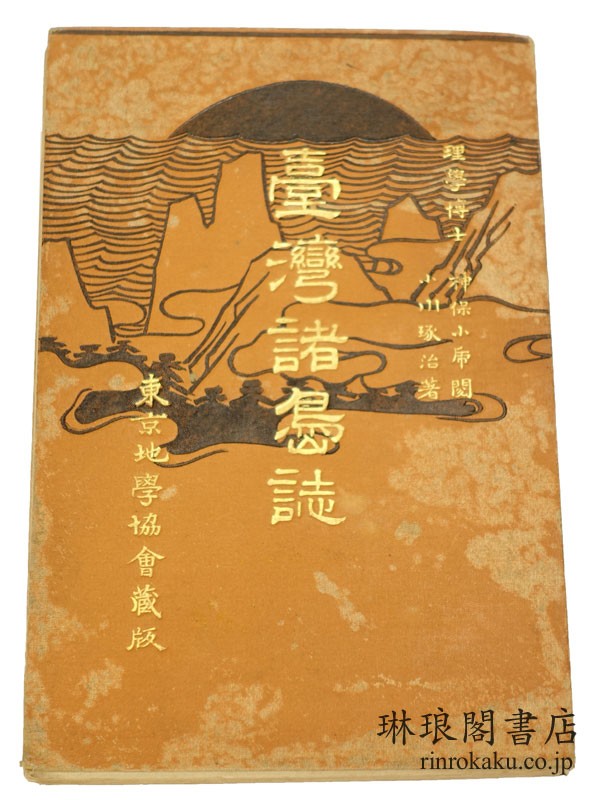 理學博士 神保小虎閱
小川琢治著
臺灣諸島誌
東京地學協會藏版
琳琅閣書店
rinrokaku.co.jp